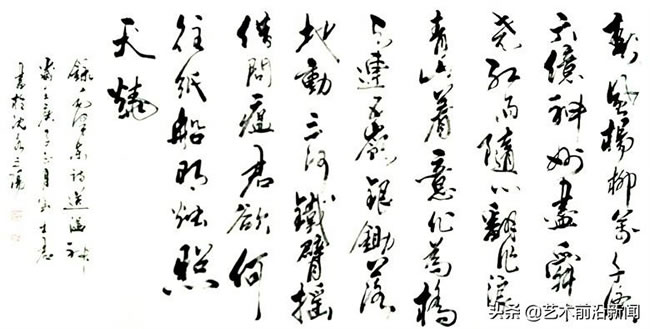 春風楊柳萬千條
六億神州盡舜
堯紅雨隨心翻作浪
青山着意化為橋
天連五嶺銀鋤落
地動三河鐵臂搖
借問瘟君欲何
往紙船明燭照
天燒
錄毛澤東詩送瘟神
庚子
書於沈水之陽
头条 @艺术前沿新闻